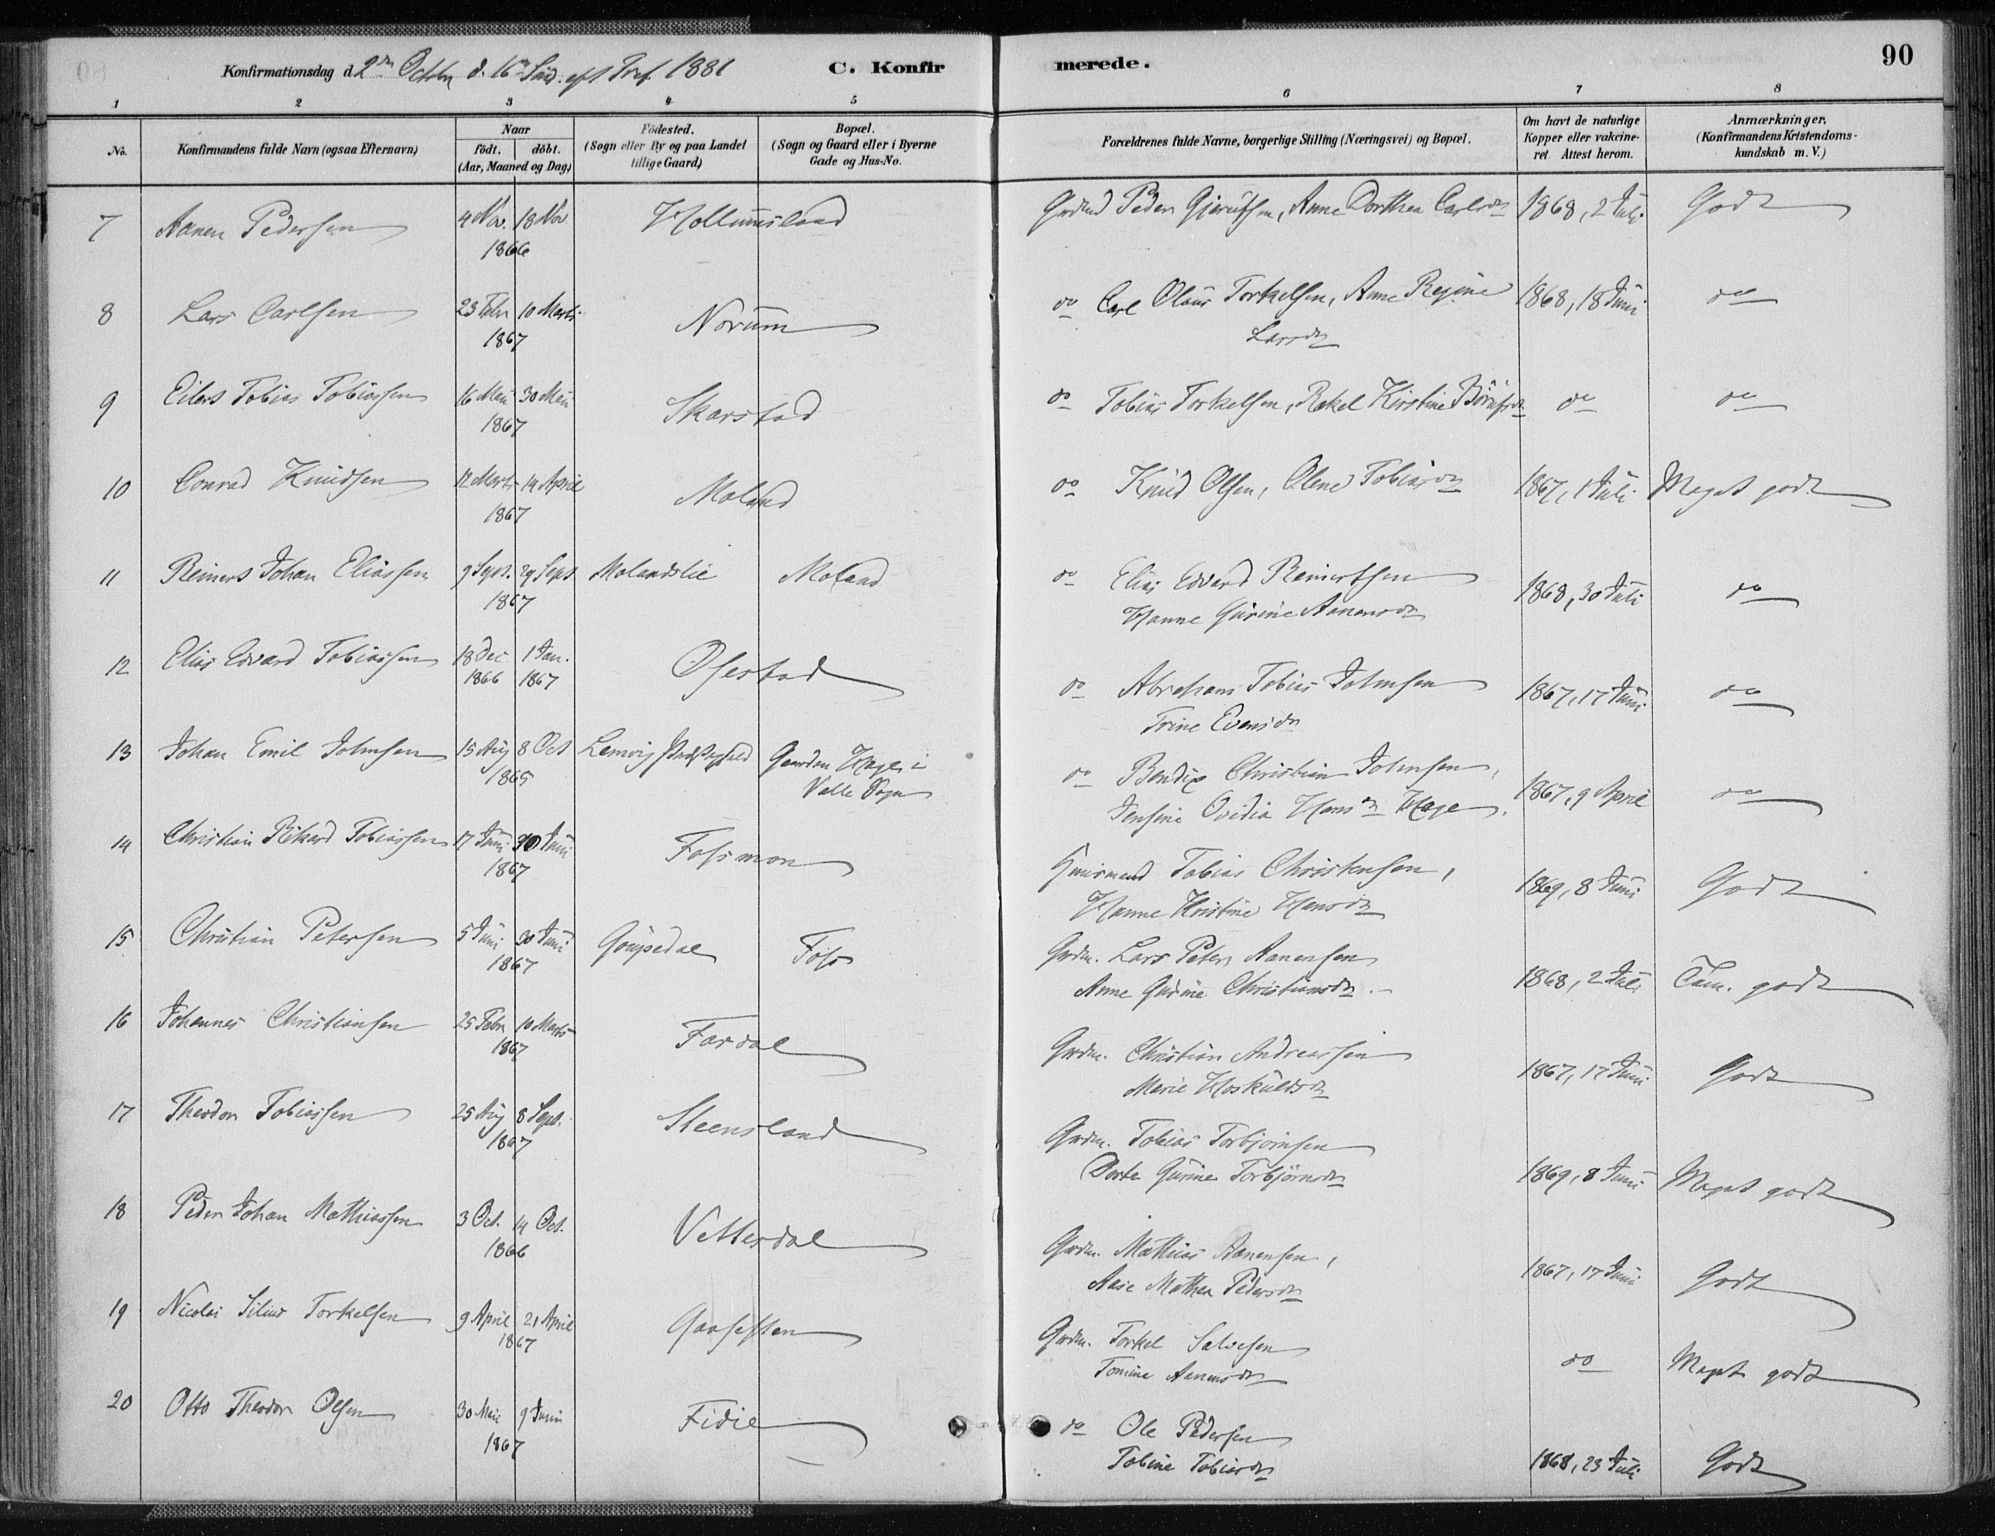 Konfirmationsdag d. 2den Octbr d. 16de Sønd. eft Tref. 1881
C. Konfirmerede.
90
1 2 3 4 5 6 7 8
No. Konfirmandens fulde Navn (ogsaa Efternavn) Naar født. døbt. (Aar, Maaned og Dag) Fødested. (Sogn eller By og paa Landet tillige Gaard) Bopæl. (Sogn og Gaard eller i Byerne Gade og Hus-No. Forældrenes fulde Navne, borgerlige Stilling (Næringsvei) og Bopæl. Om havt de naturlige Kopper eller vakcineret. Attest herom. Anmærkninger. (Konfirmandens Kristendomskundskab m. V.)
7 Aanen Pedersen 4 Nov. 18 Nov 1866 Hollumsland Grdmd Peder Gjerulfsen, Anne Dorthea Carlsdr 1868, 2 Juli Godt
8 Lars Carlsen 23 Febr 10 Marts 1867 Norum do Carl Olaus Torkelsen, Anne Regine Larsdr 1868, 18 Juni do
9 Eilert Tobias Tobiassen 16 Mai 30 Mai 1867 Skarstad do Tobias Torkelsen, Rakel Kirstine do do
10 Conrad Knudsen 12 Marts 14 April 1867 Moland do Knud Olsen, Olene Tobiasdr 1867, 1 Juli Meget godt
11 Reinert Johan Eliassen 9 Sept. 29 Sept 1867 Molandslie Moland do Elias Edvard Reinertsen
Hanne Gurine Aanensdr 1868, 30 Juli do
12 Elias Edvard Tobiassen 18 Dec 1866 1 Jan. 1867 Øfestad do Abraham Tobias Johnsen
Trine Evensdr 1867, 17 Juni do
13 Johan Emil Johnsen 15 Aug 8 Oct 1865 Lenvig Gaarden Hage i Valle Sogn do Bendix Christian Johnsen,
Jensine Ovidia Hansdr Hage. 1867, 9 April do
14 Christian Rikard Tobiassen 17 Juni 30 Juni 1867 Fossmon Huusmand Tobias Christensen,
Hanne Kristine Hansdr 1869, 8 Juni Godt
15. Christian Petersen 5 Juni 30 Juni 1867 Foss Grdm. Lars Peter Aanensen
Anne Gurine Christiansdr 1868, 2 Juli Tem. godt
16 Johannes Christiansen 25 Febr 10 Marts 1867 Fardal Grdm. Christian Andreassen
Marie Hoskuldsdr 1867, 17 Juni Godt
17 Theodor Tobiassen 25 Aug 8 Sept. 1867 Steensland Grdm. Tobias Torbjørnsen
Dorte Gurine Torbjørnsdr 1869, 8 Juni Meget godt
18 Peder Johan Mathiassen 3 Oct. 14 Oct. 1866 Vetterdal Grdm. Mathias Aanensen,
Aase Mathea Pedersdr 1867, 17 Juni Godt
19 Nicolai Silius Torkelsen 9 April 21 April 1867 Gaaseflaa Grdm. Torkel Salvesen
Tomine Aanensdr do Meget godt
20 Otto Theodor Olsen 30 Mai 9 Juni 1867 Fidie do Ole Pedersen
Tobine Tobiasdr 1868, 23 Juli Godt